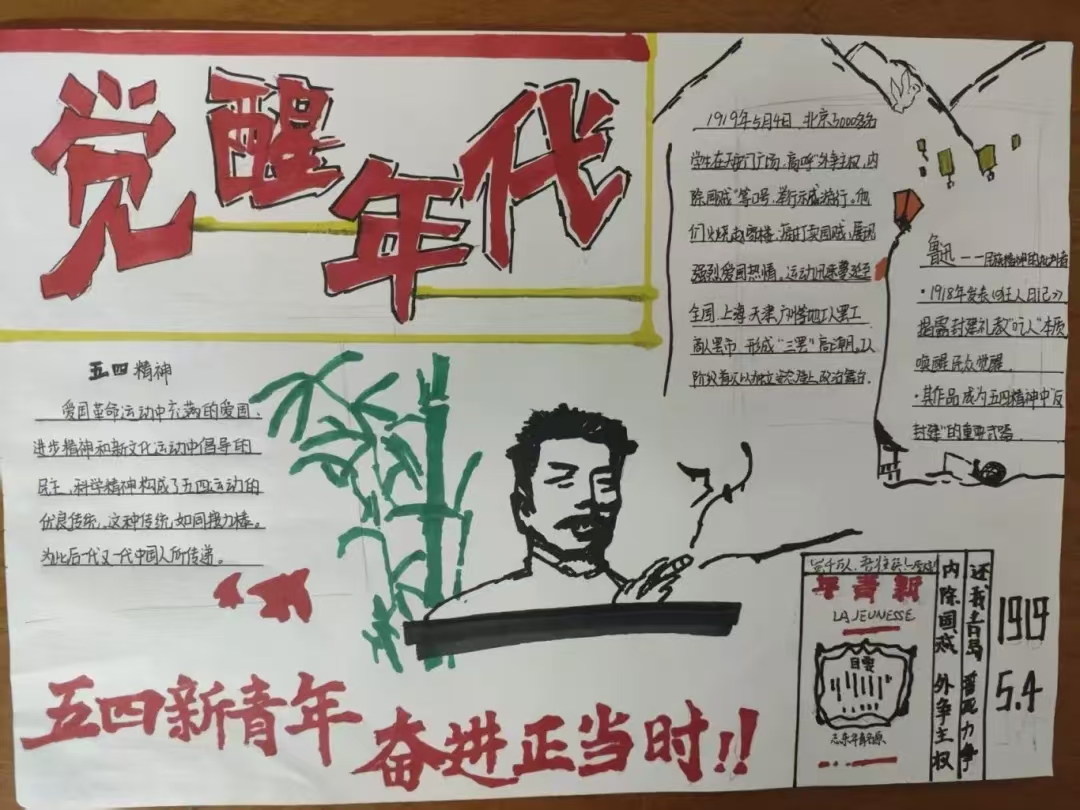 觉醒年代
1919年5月4日,北京3000多名
学生在天安门广场,高呼"外争主权,内
除国贼"等口号,举行示威游行。他
们火烧赵家楼,痛打卖国贼,展现
强烈爱国热情,运动迅速蔓延至
全国,上海天津广州等地工人罢工
商人罢市 形成"三罢"高潮。工
鲁迅——民族精神的批判者
·1918年发表《狂人日记》
揭露封建礼教"吃人"本质
唤醒民众觉醒.
·其作品成为五四精神中"反
封建"的重要武器.
五四精神
爱国革命运动中充满的爱国、
进步精神和新文化运动中倡导的
民主、科学精神构成了五四运动的
优良传统,这种传统,如同接力棒。
为此后一代又一代中国人所传递。
年青新
LA JEUNESSE
目要
内除国贼 外争主权
还我青岛 誓死力争
1919
5.4
五四新青年
奋进正当时!!